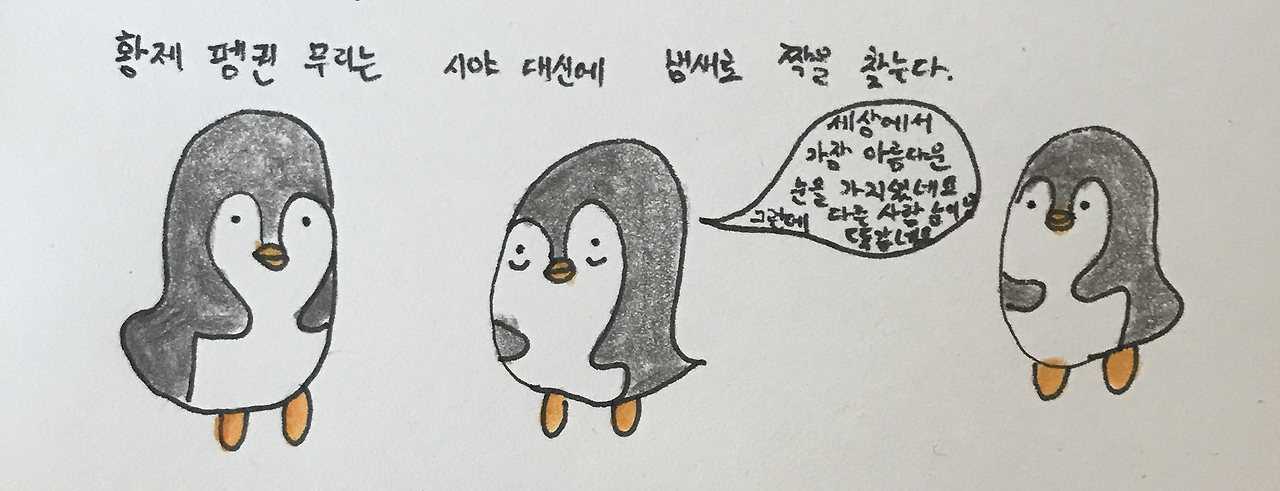 황제 펭귄 무리는 시야 대신에 냄새로 짝을 찾는다.
세상에서
가장 아름다운
눈을 가지셨네요
그런데 다른 사람
똑같네요